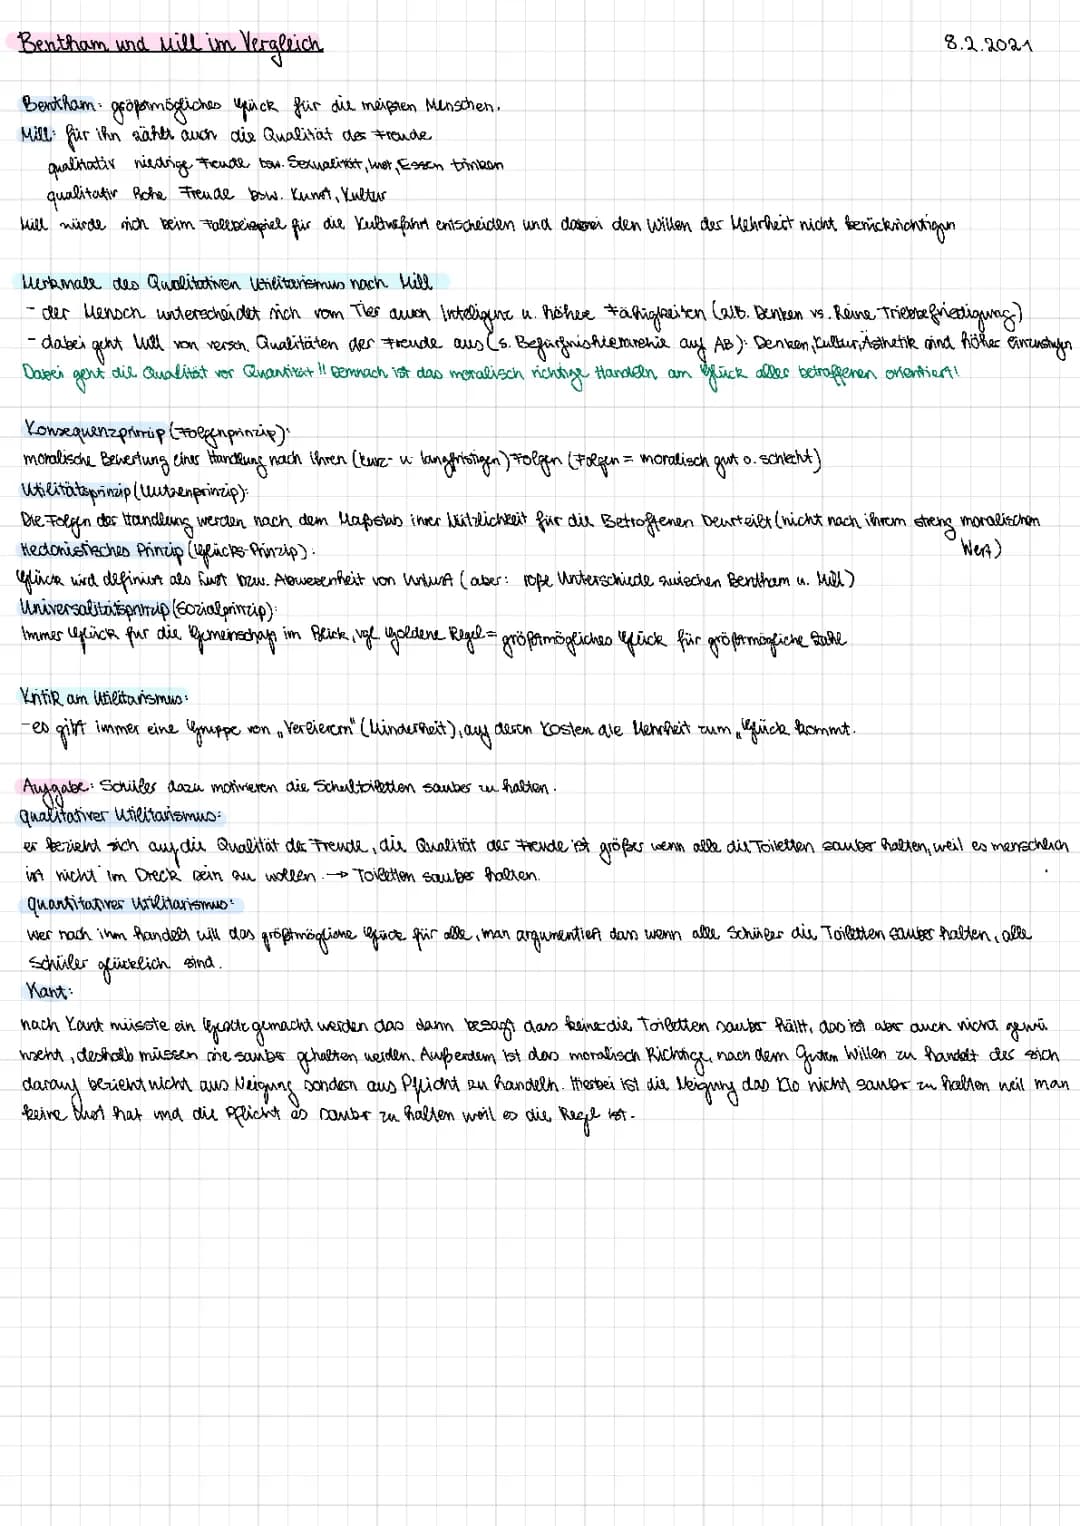 Bentham und Mill im Vergleich
8.2.2021
Bentham: größtmögliches Glück für die meisten Menschen.
Mill: für ihn zählt auch die Qualität der Freude
qualitativ niedrige Freude bsw. Sexualität, Essen trinken
qualitativ hohe Freude bsw. Kunst, Kultur
Mill würde sich beim Fallbeispiel für die Kulturfahrt entscheiden und dabei den Willen der Mehrheit nicht berücksichtigen
Merkmale des Qualitativen Utilitarismus nach Mill
- der Mensch unterscheidet sich vom Tier durch Inteligenz u. höhere Fähigkeiten (alb. Denken vs. Reine Triebbefriedigung)
- dabei geht Mill von versch. Qualitäten der Freude aus (s. Bedürfnishierarchie auf AB): Denken, Kultur, Ästhetik sind höher einzustufen
Dabei geht die Qualität vor Quantität!! Demnach ist das moralisch richtige Handeln am Glück aller betroffenen orientiert!
Konsequenzprinzip (Folgenprinzip):
moralische Bewertung einer Handlung nach ihren (kurz- u. langfristigen) Folgen (Folgen = moralisch gut o. schlecht)
Utilitätsprinzip (Nutzenprinzip):
Die Folgen der Handlung werden nach dem Maßstab ihrer Nützlichkeit für die Betroffenen beurteilt (nicht nach ihrem streng moralischen
Wert)
Hedonistisches Prinzip (Glücks-Prinzip):
Glück wird definiert als Lust bzw. Abwesenheit von Unlust (aber: Unterschiede zwischen Bentham u. Mill)
Universalitätsprinzip (Sozialprinzip):
Immer Glück für die Gemeinschaft im Blick, vgl. goldene Regel = größtmögliches Glück für größtmögliche Zahl
Kritik am Utilitarismus:
- es gibt immer eine Gruppe von „Verlierern" (Minderheit), auf deren Kosten die Mehrheit zum „Glück kommt.
Aufgabe: Schüler dazu motivieren die Schultoiletten sauber zu halten.
qualitativer Utilitarismus:
er bezieht sich auf die Qualität der Freude, die Qualität der Freude ist größer wenn alle die Toiletten sauber halten, weil es menschlich
ist nicht im Dreck sein zu wollen. → Toiletten sauber halten.
quantitativer Utilitarismus:
wer nach ihm handelt will das größtmögliche Glück für alle, man argumentiert dass wenn alle Schüler die Toiletten sauber halten, alle
Schüler glücklich sind.
Kant:
nach Kant müsste ein gemacht werden das dann besagt dass keiner die Toiletten sauber hällt, das ist aber auch nicht gewü
nscht, deshalb müssen sie sauber gehalten werden. Außerdem ist das moralisch Richtige, nach dem Guten Willen zu handelt der sich
darauf bezieht nicht aus Neigung sondern aus Pflicht zu handeln. Hierbei ist die Neigung das Klo nicht sauber zu halten weil man
keine Lust hat und die Pflicht es sauber zu halten weil es die Regel ist.